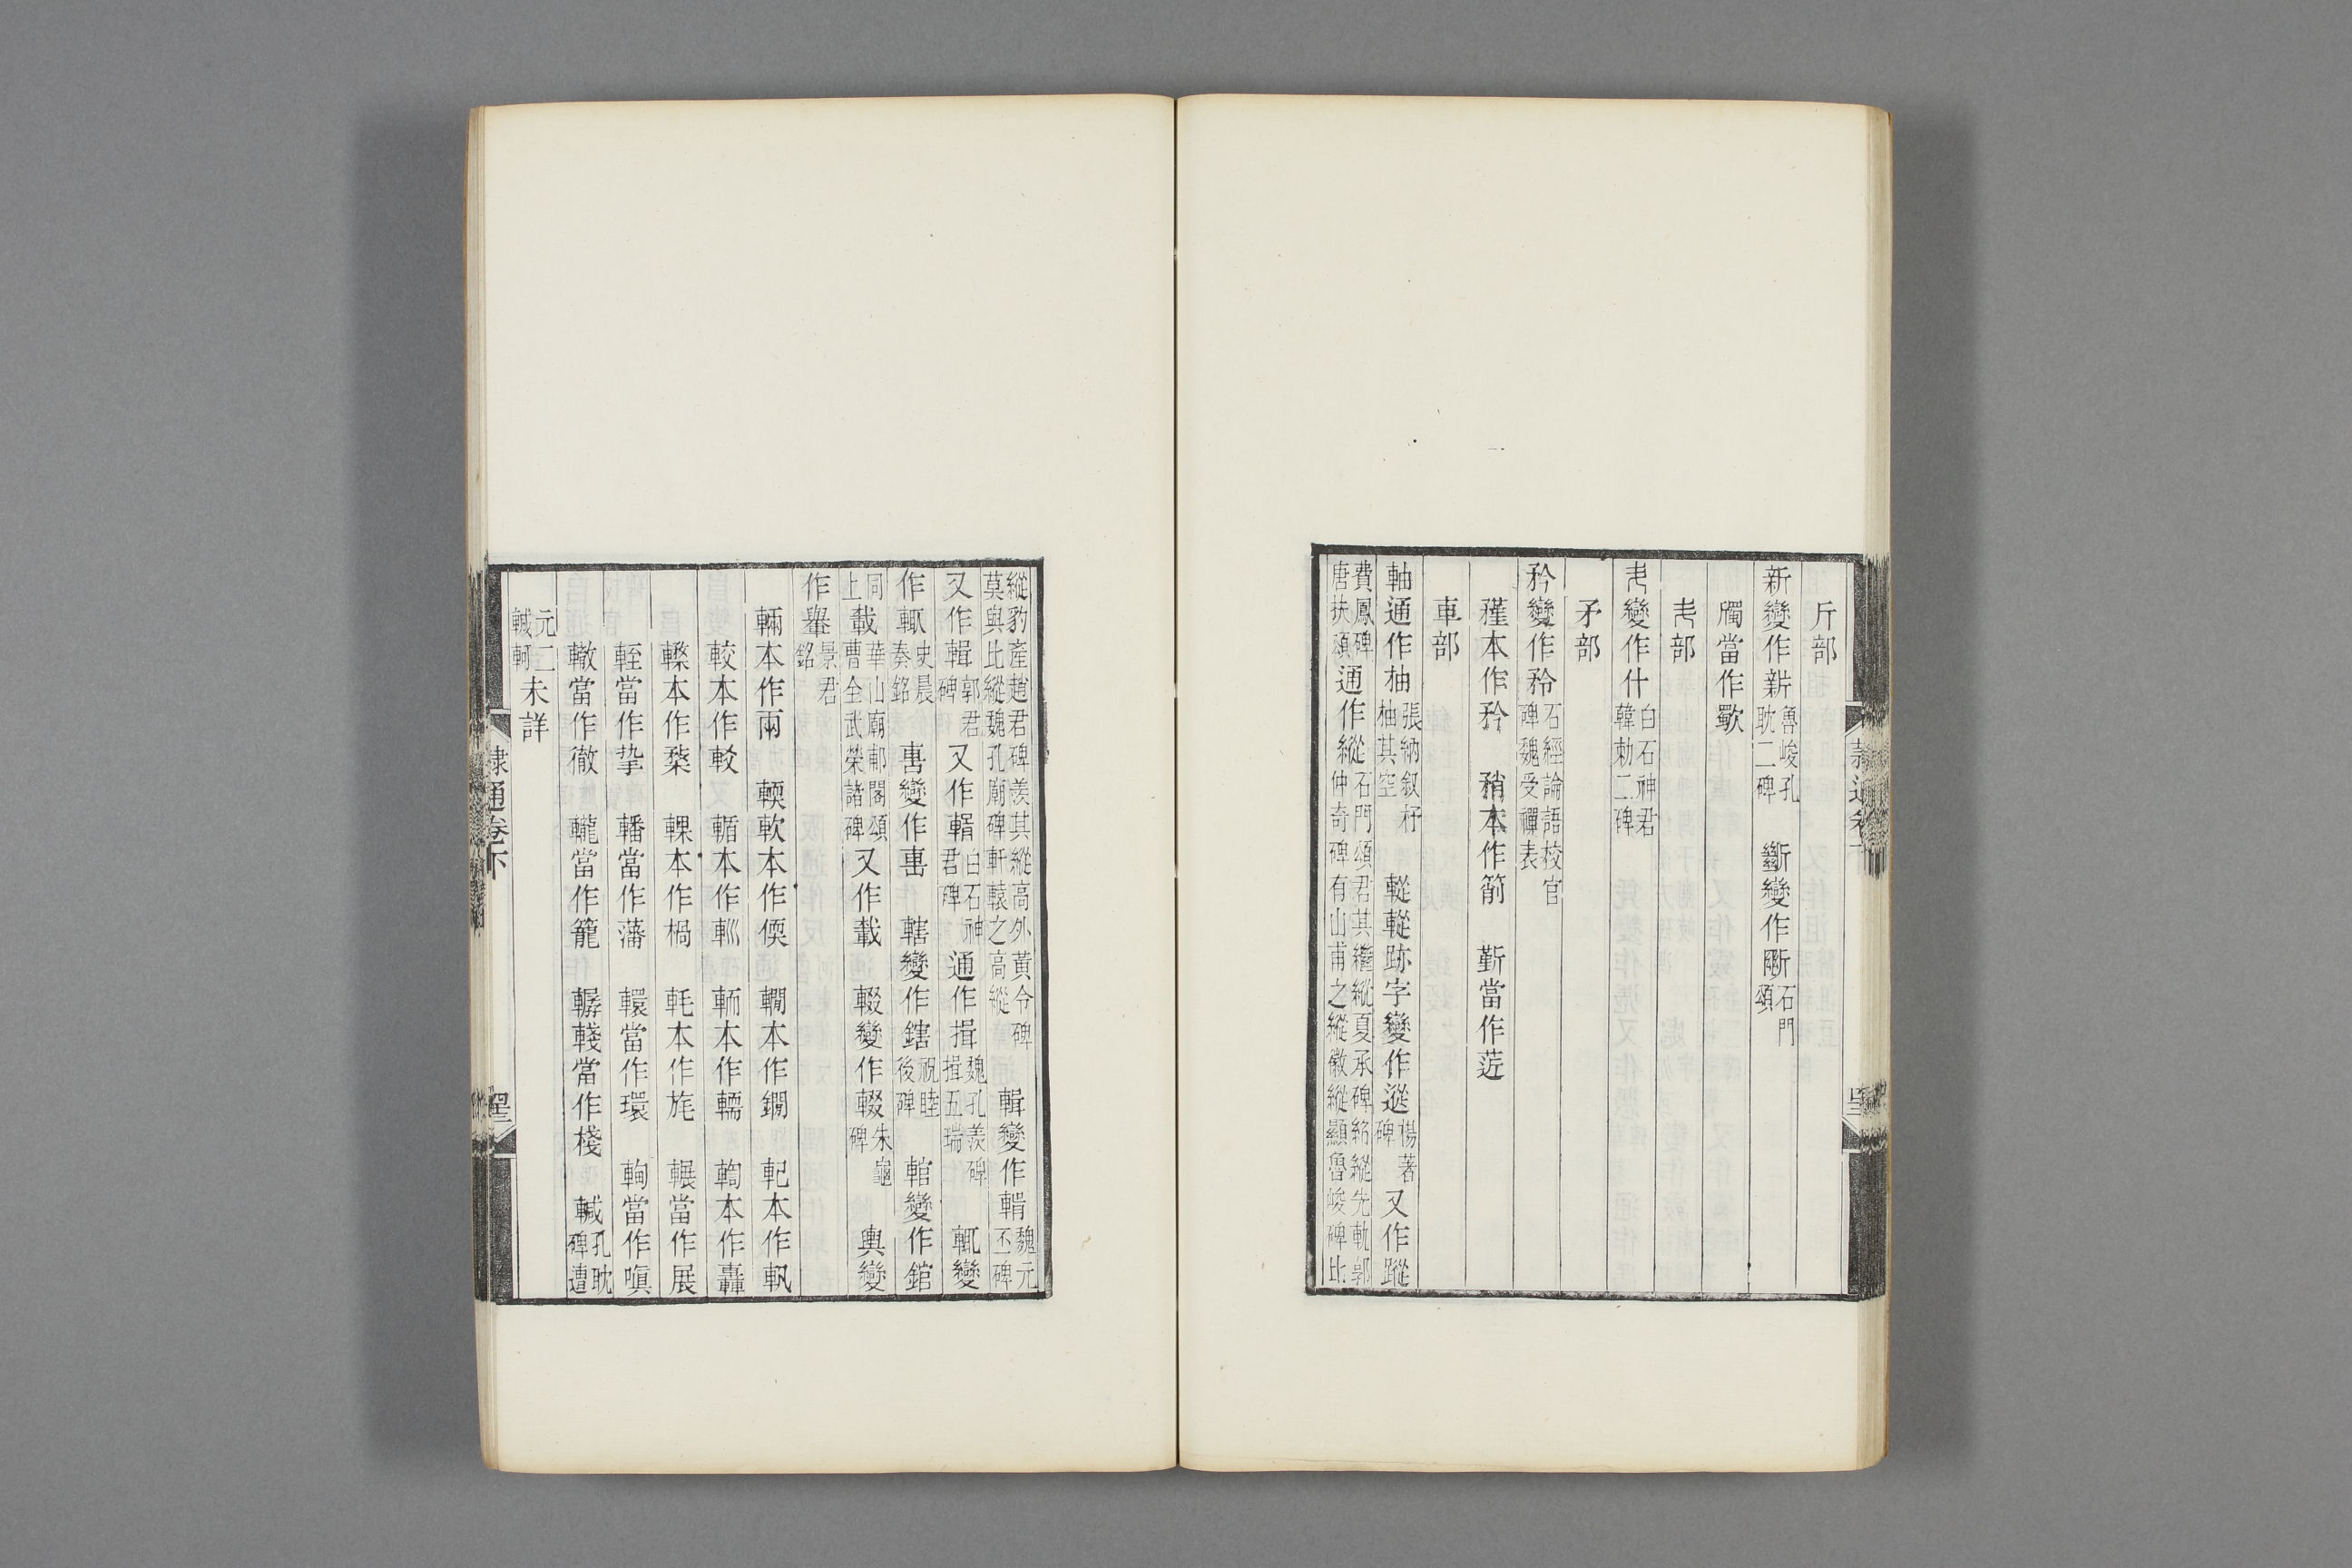 斤部
新變作新魯峻孔耽二碑 斷變作斷石門頌
斸當作斀
部
變作什白石神君韓勅二碑
矛部
矜變作矜石經論語校官碑魏受禪表
䅖本作矜 矟本作箾 䂄當作䓸
車部
軸通作柚張納叙杼柚其空 䡮䡮跡字變作蹤楊著碑又作蹤
費鳳碑唐扶頌通作縱石門頌君其繼縱夏承碑紹縱先軌郭仲奇碑有山甫之縱徽縱顯魯峻碑比
縱豹產趙君碑羨其縱高外黃令碑莫與比縱魏孔廟碑軒轅之高縱 輯變作輯魏元丕碑
又作輯郭君碑又作輯白石神君碑 通作揖魏孔羨碑揖五瑞 輒變
作輒史晨奏銘 轊變作轊 轄變作鎋祝睦後碑 輨變作錧
同上載華山廟郙閣頌曹全武榮諸碑又作載 輟變作輟朱龜碑 輿變
作轝景君銘
輛本作兩 輭軟本作偄 轛本作鐗 䡋本作軓
較本作較 輴本作輴 輀本作轜 輷本作轟
轚本作槃 輠本作楇 軞本作旄 輾當作展
輊當作摯 轓當作藩 轘當作環 輷當作嗔
轍當作徹 轞當作籠 轏輚當作棧 䡨孔耽碑遭
元二䡨軻未詳
隸通卷下